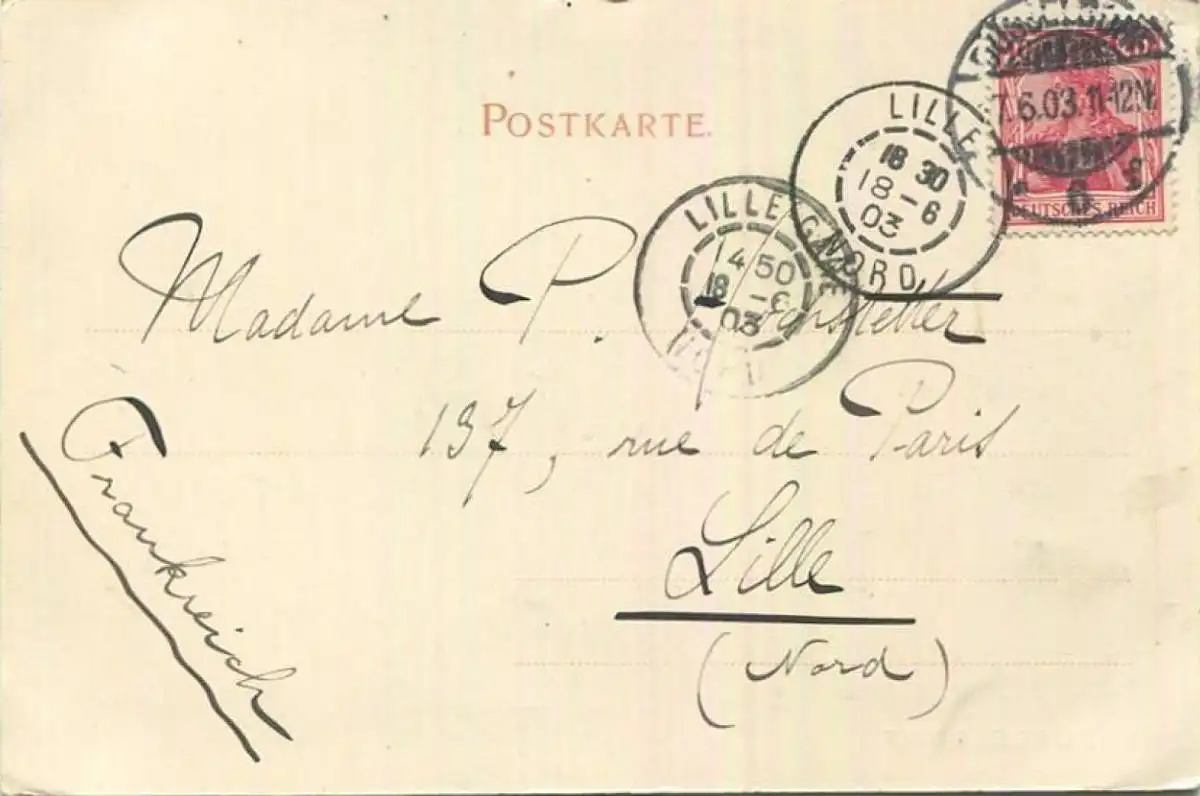 POSTKARTE.
7.6.03.11-12N.
* 6 f
DEUTSCHES REICH
LILLE
18 30
18 - 6
03
NORD
LILLE GARE
4 50
18 - 6
03
Madame P.
137, rue de Paris
Lille
(Nord)
Frankreich